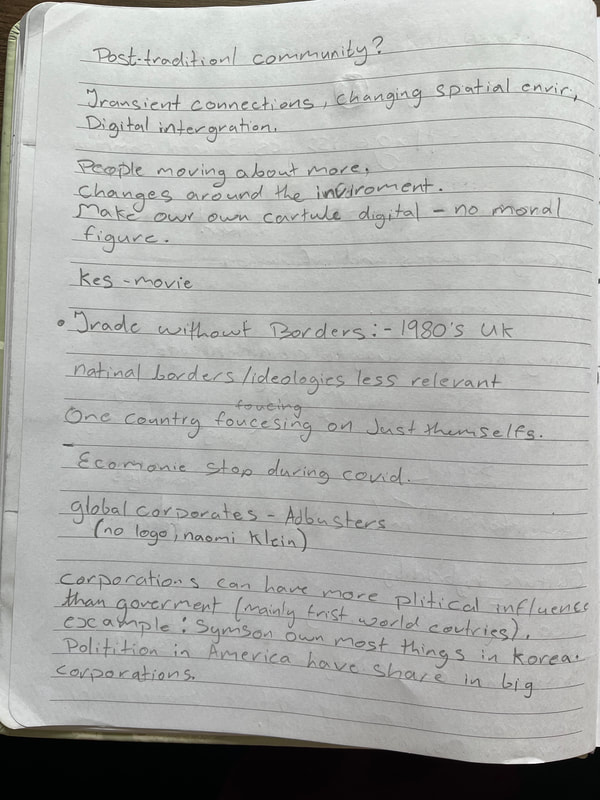 Post-traditionl community?
Transient connections, changing spatial envir,
Digital intergration.
People moving about more,
Changes around the inviroment.
Make owr own cartule digital - no moral
figure.
kes - movie
• Trade without Borders:- 1980's UK
natinal borders/ideologies less relevant
foucing
One country foucesing on Just themselfs.
- Ecomonic stop during covid.
global corporates - Adbusters
(no logo, naomi Klein)
Corporations can have more plitical influence
than goverment (mainly frist world coutries).
excample: Symson own most things in Korea.
Politition in America have share in big
corporations.